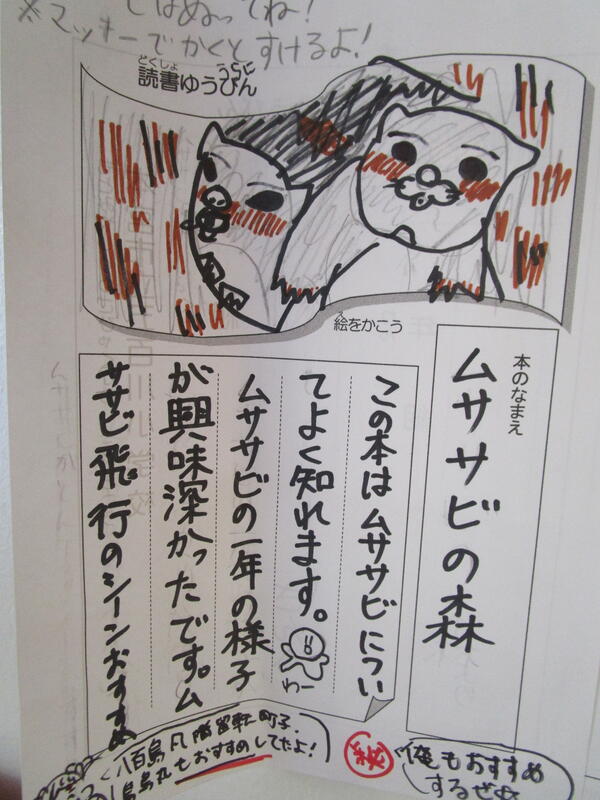 しはぬってね!
※マッキーでかくとすけるよ!
どくしょ
読書ゆうびん
うらに
え
絵をかこう
本のなまえ
ムササビの森
この本はムササビについ
てよく知れます。
わー
ムササビの一年の様子
が興味深かったです。ム
ササビ飛行のシーンおすすめ
もおすすめしてたよ!
俺もおすすめ
するぜ